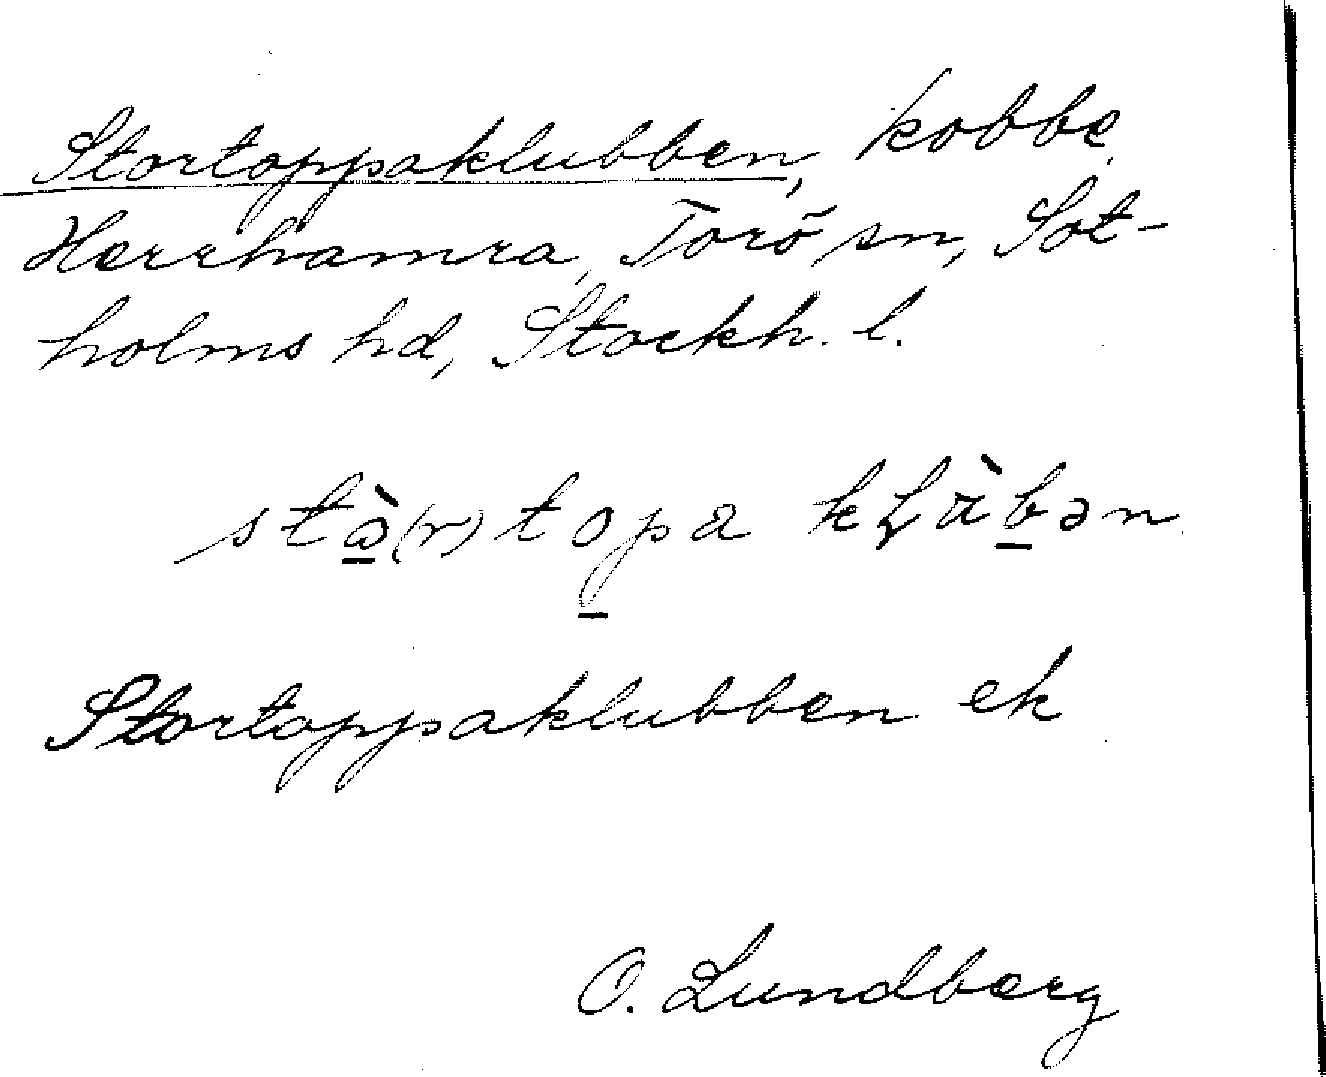 Stortoppaklubben, kobbe,
Herrhamra, Torö sn, Sot-
holms hd, Stockh. l.
stə̀(r)topa kļàbən
Stortoppaklubben ek
O. Lundberg